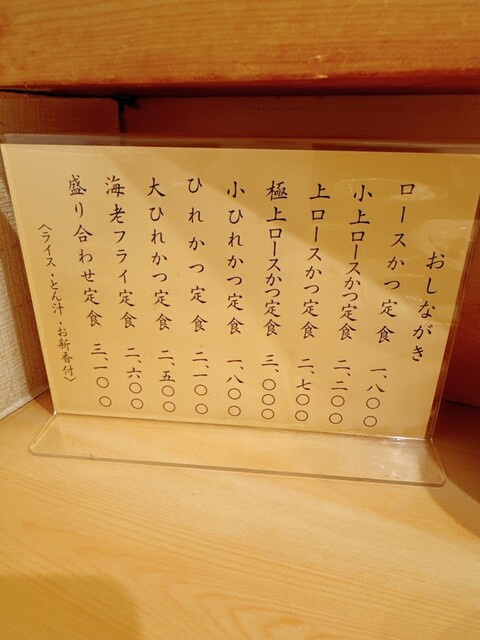 おしながき
ロースかつ定食 一、八〇〇
小上ロースかつ定食 二、二〇〇
上ロースかつ定食 二、七〇〇
極上ロースかつ定食 三、〇〇〇
小ひれかつ定食 一、八〇〇
ひれかつ定食 二、一〇〇
大ひれかつ定食 二、五〇〇
海老フライ定食 二、六〇〇
盛り合わせ定食 三、一〇〇
〈ライス・とん汁・お新香付〉